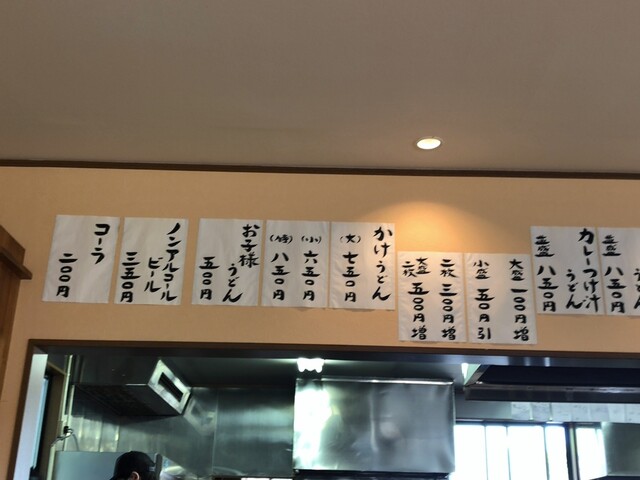 並盛 八五〇円
カレーつけ汁
うどん
並盛 八五〇円
大盛 一〇〇円増
小盛 五〇円引
二枚 三〇〇円増
大盛二枚 五〇〇円増
かけうどん
(大) 七五〇円
(小) 六五〇円
(特) 八五〇円
お子様
うどん
五〇〇円
ノンアルコール
ビール
三五〇円
コーラ
二〇〇円